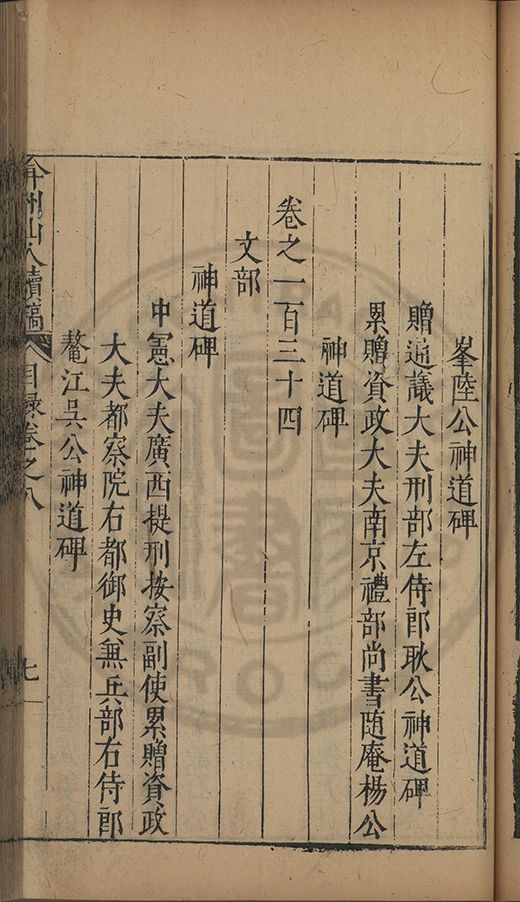 峯陸公神道碑
贈通議大夫刑部左侍郎耿公神道碑
累贈資政大夫南京禮部尚書随庵楊公
神道碑
卷之一百三十四
文部
神道碑
中憲大夫廣西提刑按察副使累贈資政
大夫都察院右都御史兼兵部右侍郎
鼇江吳公神道碑
弇州山人續稿 目録卷之八 七